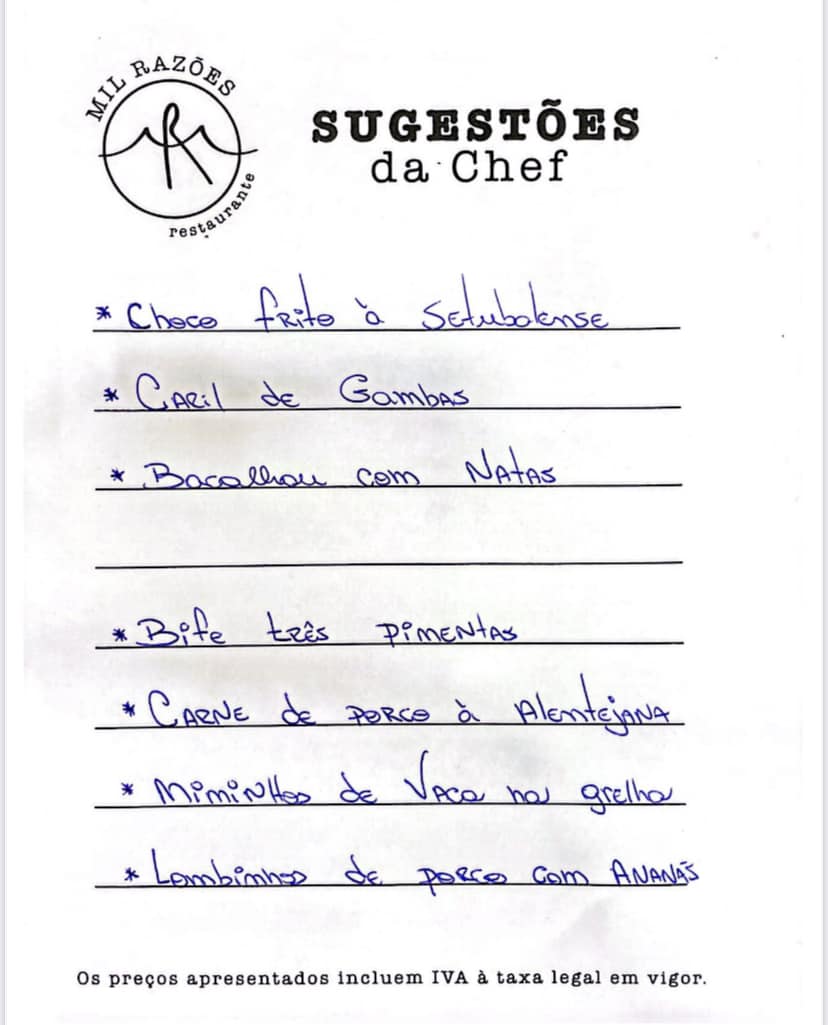 MIL RAZÕES
restaurante
SUGESTÕES
da Chef
* Choco frito à Setubalense
* Caril de Gambas
* Bacalhau com Natas
* Bife três pimentas
* Carne de porco à Alentejana
* Miminhos de Vaca na grelha
* Lombinhos de porco com Ananás
Os preços apresentados incluem IVA à taxa legal em vigor.